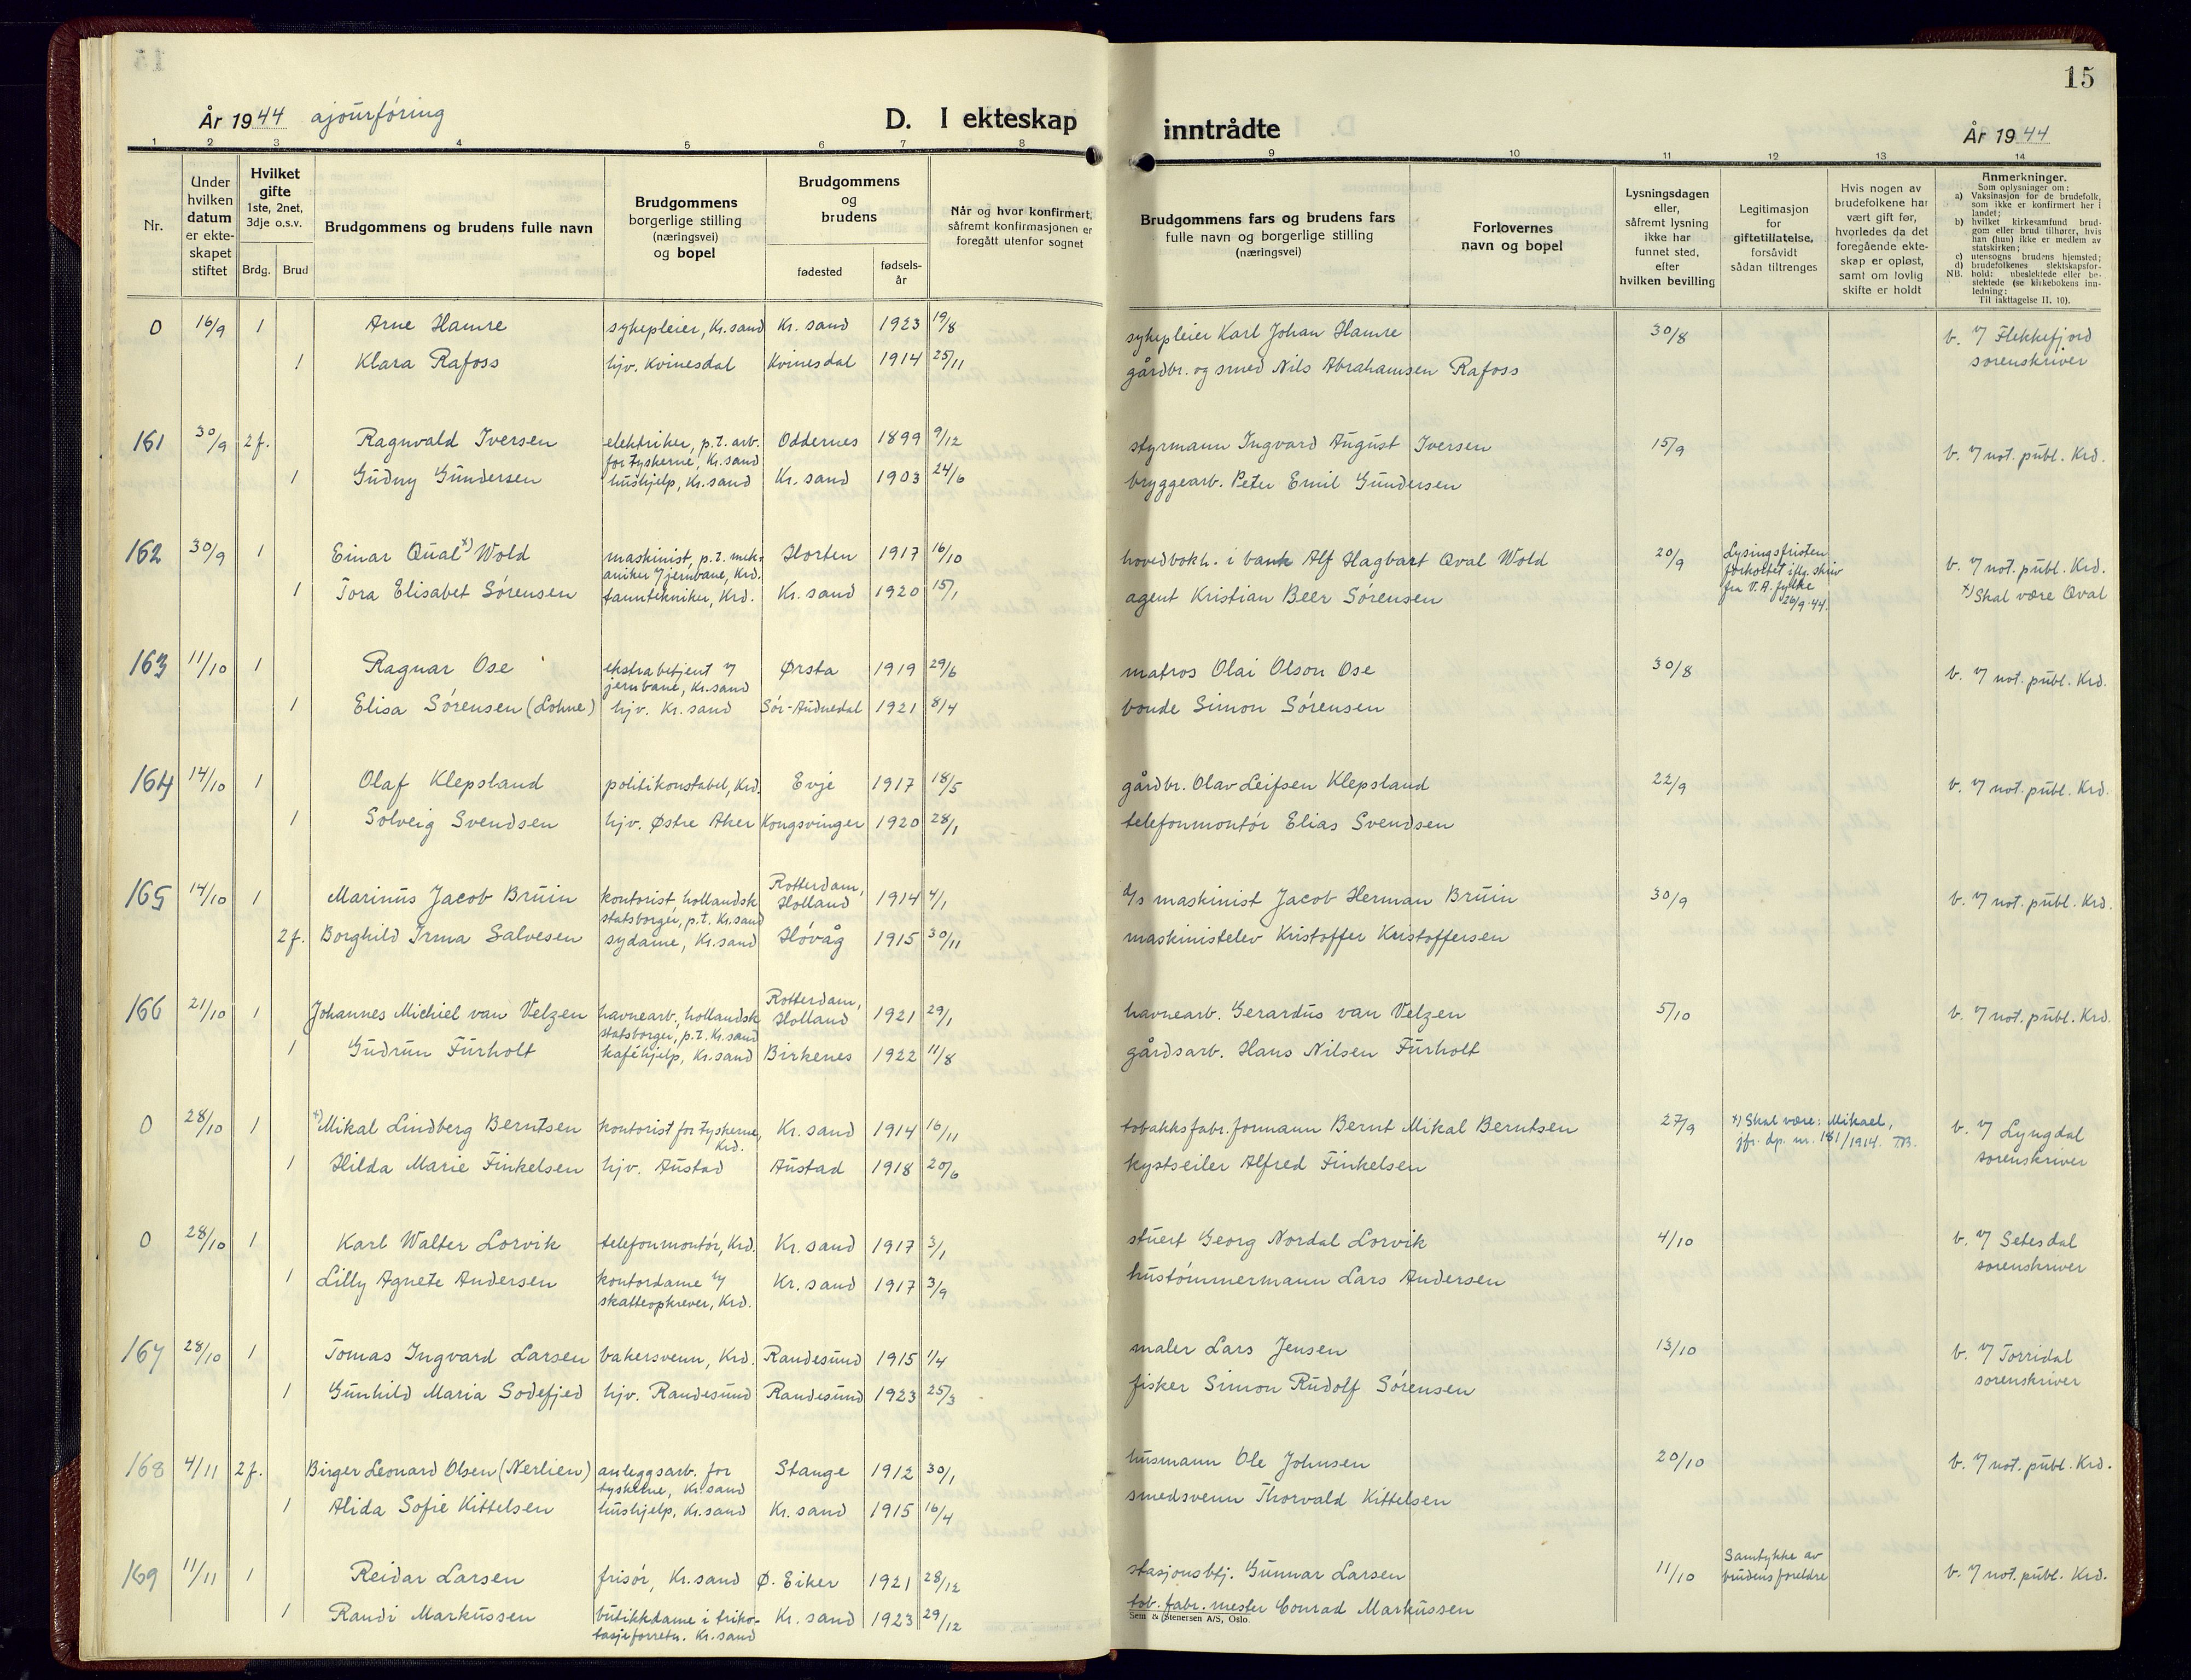 15
År 1944 ajourføring
D. I ekteskap inntrådte
År 1944
1 2 3 4 5 6 7 8 9 10 11 12 13 14
Nr.
Under hvilken datum er ekteskapet stiftet
Hvilket gifte 1ste, 2net, 3dje o.s.v.
Brdg. Brud
Brudgommens og brudens fulle navn
Brudgommens borgerlige stilling (næringsvei) og bopel
Brudgommens og brudens
fødested
fødselsår
Når og hvor konfirmert, såfremt konfirmasjonen er foregått utenfor sognet
Brudgommens fars og brudens fars fulle navn og borgerlige stilling (næringsvei)
Forlovernes navn og bopel
Lysningsdagen eller, såfremt lysning ikke har funnet sted, efter hvilken bevilling
Legitimasjon for giftetillatelse, forsåvidt sådan tiltrenges
Hvis nogen av brudefolkene har vært gift før, hvorledes da det foregående ekteskap er opløst, samt om lovlig skifte er holdt
Anmerkninger.
Som oplysninger om:
a) Vaksinasjon for de brudefolk, som ikke er konfirmert her i landet;
b) hvilket kirkesamfund brudgom eller brud tilhører, hvis han (hun) ikke er medlem av statskirken;
c) utensogns brudens hjemsted;
d) brudefolkenes slektskapsforhold: ubeslektede eller beslektede (se kirkebokens innledning:
NB.
Til iakttagelse II, 10).
0 16/9 1 Arne Hamre sykepleier, Kr.sand Kr. sand 1923 19/8 sykepleier Karl Johan Hamre 30/8 b. v/ Flekkefjord
1 Klara Rafoss hjv. Kvinesdal Kvinesdal 1914 25/11 gårdbr. og smed Nils Abrahamsen Rafoss sorenskriver
161 30/9 2f. Ragnvald Iversen elektriker, p.t. arb. Oddernes 1899 9/12 styrmann Ingvard August Iversen 15/9 b. v/ not. publ. Krd.
for tyskerne, Kr.sand
1 Gudny Gundersen hushjelp, Kr.sand Kr. sand 1903 24/6 bryggearb. Peter Emil Gundersen
162 30/9 1 Einar Qual x) Wold maskinist, p.t. mek- Horten 1917 16/10 hovedbokh. i bank Alf Hagbart Qval Wold 20/9 Lysingsfristen b. v/ not. publ. Krd.
aniker v/ jernbane, Krd. forkortet iflg. skriv
1 Tora Elisabet Sørensen tanntekniker, Krd. Kr. sand 1920 15/1 agent Kristian Beer Sørensen fra V.A. fylke x) Skal være Qval
26/9-44.
163 11/10 1 Ragnar Ose ekstrabetjent v/ Ørsta 1919 29/6 matros Olai Olson Ose 30/8 b. v/ not. publ. Krd.
jernbane, Kr.sand
1 Elisa Sørensen (Lohne) hjv. Kr. sand Sør-Audnedal 1921 8/4 bonde Simon Sørensen
164 14/10 1 Olaf Klepsland politikonstabel, Krd. Evje 1917 18/5 gårdbr. Olav Leifsen Klepsland 22/9 b. v/ not. publ. Krd.
1 Solveig Svendsen hjv. Østre Aker Kongsvinger 1920 28/1 telefonmontør Elias Svendsen
165 14/10 1 Marinus Jacob Bruin kontorist, hollandsk Rotterdam, Holland 1914 4/1 d/s maskinist Jacob Herman Bruin 30/9 b. v/ not. publ. Krd.
statsborger, p.t. Kr.sand
2f. Borghild Irma Salvesen sydame, Kr.sand Høvåg 1915 30/11 maskinistelev Kristoffer Kristoffersen
166 21/10 1 Johannes Michiel van Velzen havnearb, hollandsk Rotterdam, Holland 1921 29/1 havnearb. Gerardus van Velzen 5/10 b. v/ not. publ. Krd.
statsborger, p.t. Kr.sand
1 Gudrun Furholt kaféhjelp, Kr.sand Birkenes 1922 11/8 gårdsarb. Hans Nilsen Furholt
0 28/10 1 x) Mikal Lindberg Berntsen kontorist for tyskerne, Krd. Kr. sand 1914 16/11 tobakksfabr.formann Bernt Mikal Berntsen 27/9 x) Skal være: Mikael, b. v/ Lyngdal
jfr. dp. nr. 181/1914. TB.
1 Hilda Marie Finkelsen hjv. Austad Austad 1918 20/6 kystseiler Alfred Finkelsen sorenskriver
0 28/10 1 Karl Walter Lorvik telefonmontør, Krd. Kr. sand 1917 3/1 stuert Georg Nordal Lorvik 4/10 b. v/ Setesdal
1 Lilly Agnete Andersen kontordame v/ Kr. sand 1917 3/9 hustømmermann Lars Andersen sorenskriver
skatteopkrever, Krd.
167 28/10 1 Tomas Ingvard Larsen bakersvenn, Krd. Randesund 1915 1/4 maler Lars Jensen 13/10 b. v/ Torridal
1 Gunhild Maria Sodefjed hjv. Randesund Randesund 1923 25/3 fisker Simon Rudolf Sørensen sorenskriver
168 4/11 2f. Birger Leonard Olsen (Nerlien) anleggsarb. for Stange 1912 30/1 husmann Ole Johnsen 20/10 b. v/ not. publ. Krd.
tyskerne, Kr.sand
1 Alida Sofie Kittelsen hushjelp, Kr.sand Kr. sand 1915 16/4 smedsvenn Thorvald Kittelsen
169 11/11 1 Reidar Larsen frisør, Kr.sand Ø. Eiker 1921 28/12 stasjonsbtj. Gunnar Larsen 11/10 Samtykke av brudens foreldre b. v/ not. publ. Krd.
1 Randi Markussen butikkdame i triko- Kr. sand 1923 29/12 tob. fabr. mester Conrad Markussen
tasjeforretn. Kr.sand
Sem & Stenersen A/S, Oslo